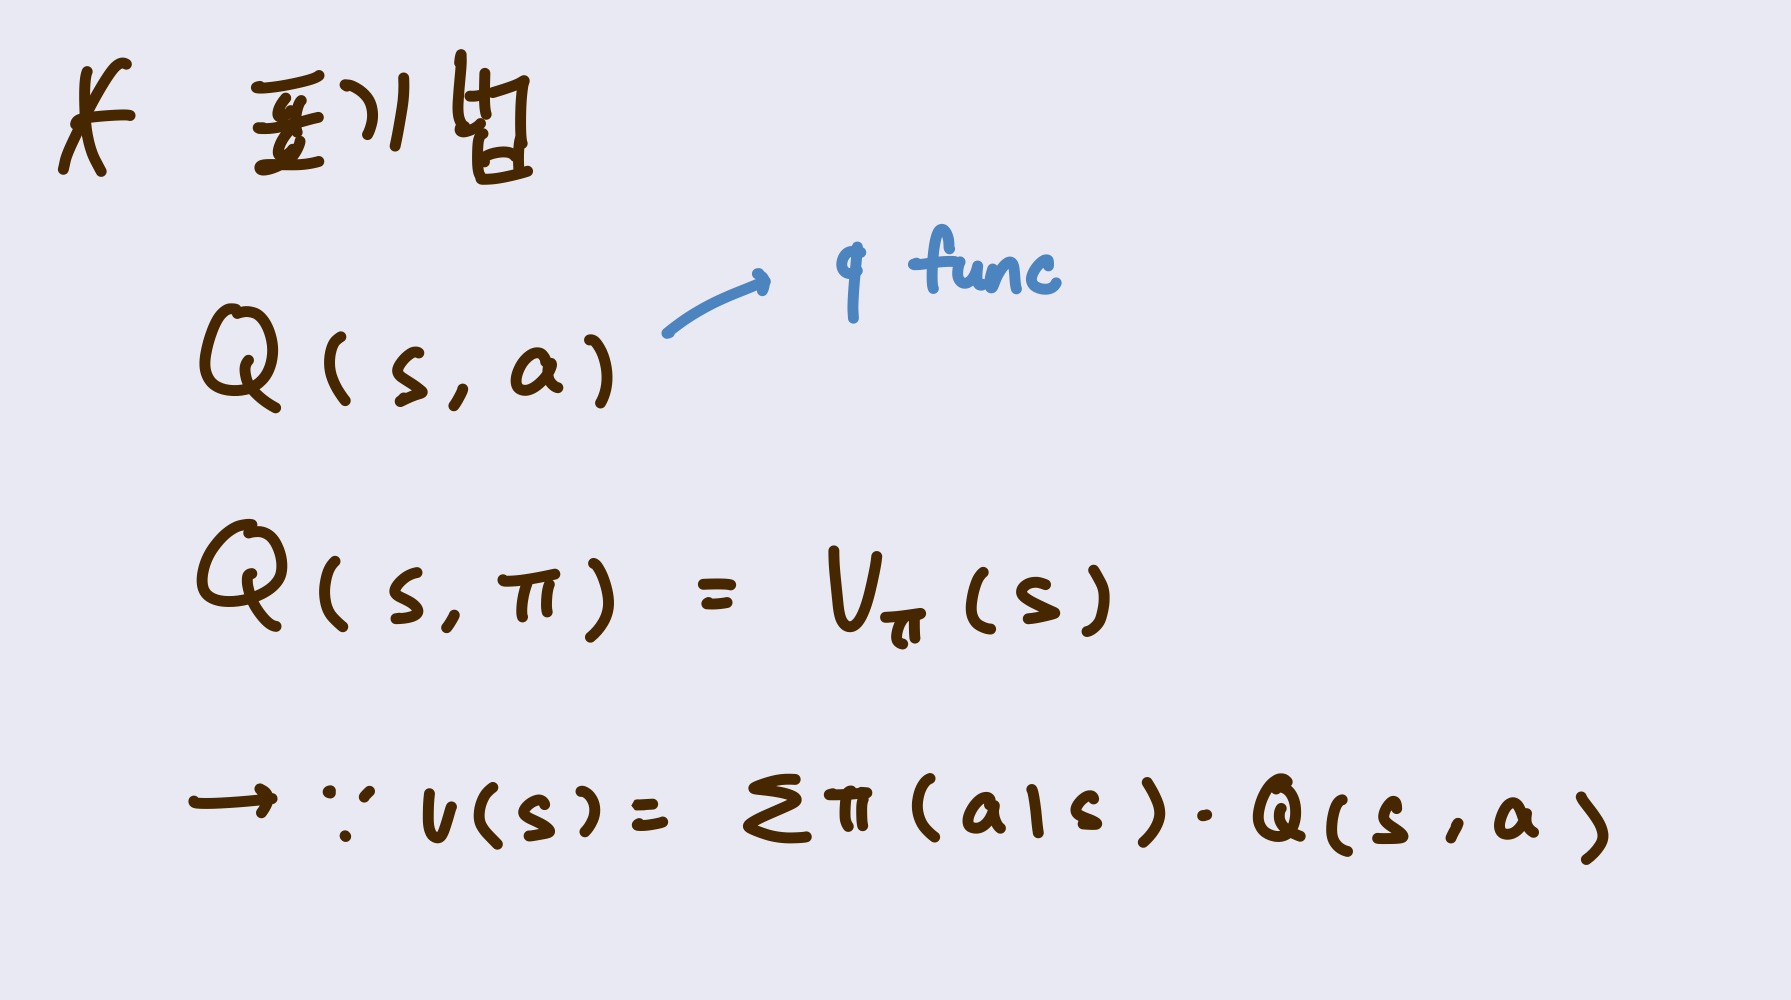 * 표기법
Q(s, a) → q func
Q(s, π) = V_π(s)
→ ∵ v(s) = Σπ(a|s)·Q(s, a)